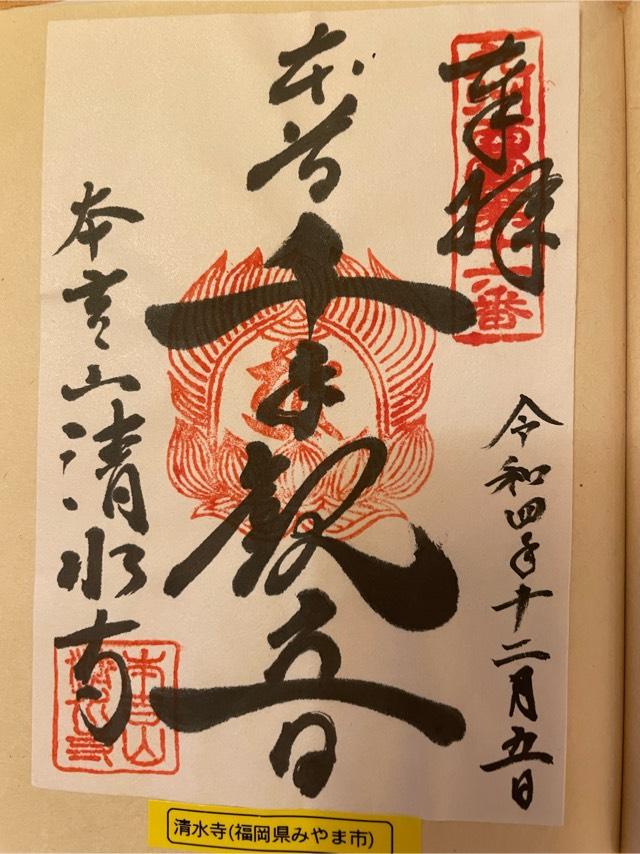 奉拝
令和四年十二月五日
本尊
千手観音
本吉山清水寺
清水寺(福岡県みやま市)